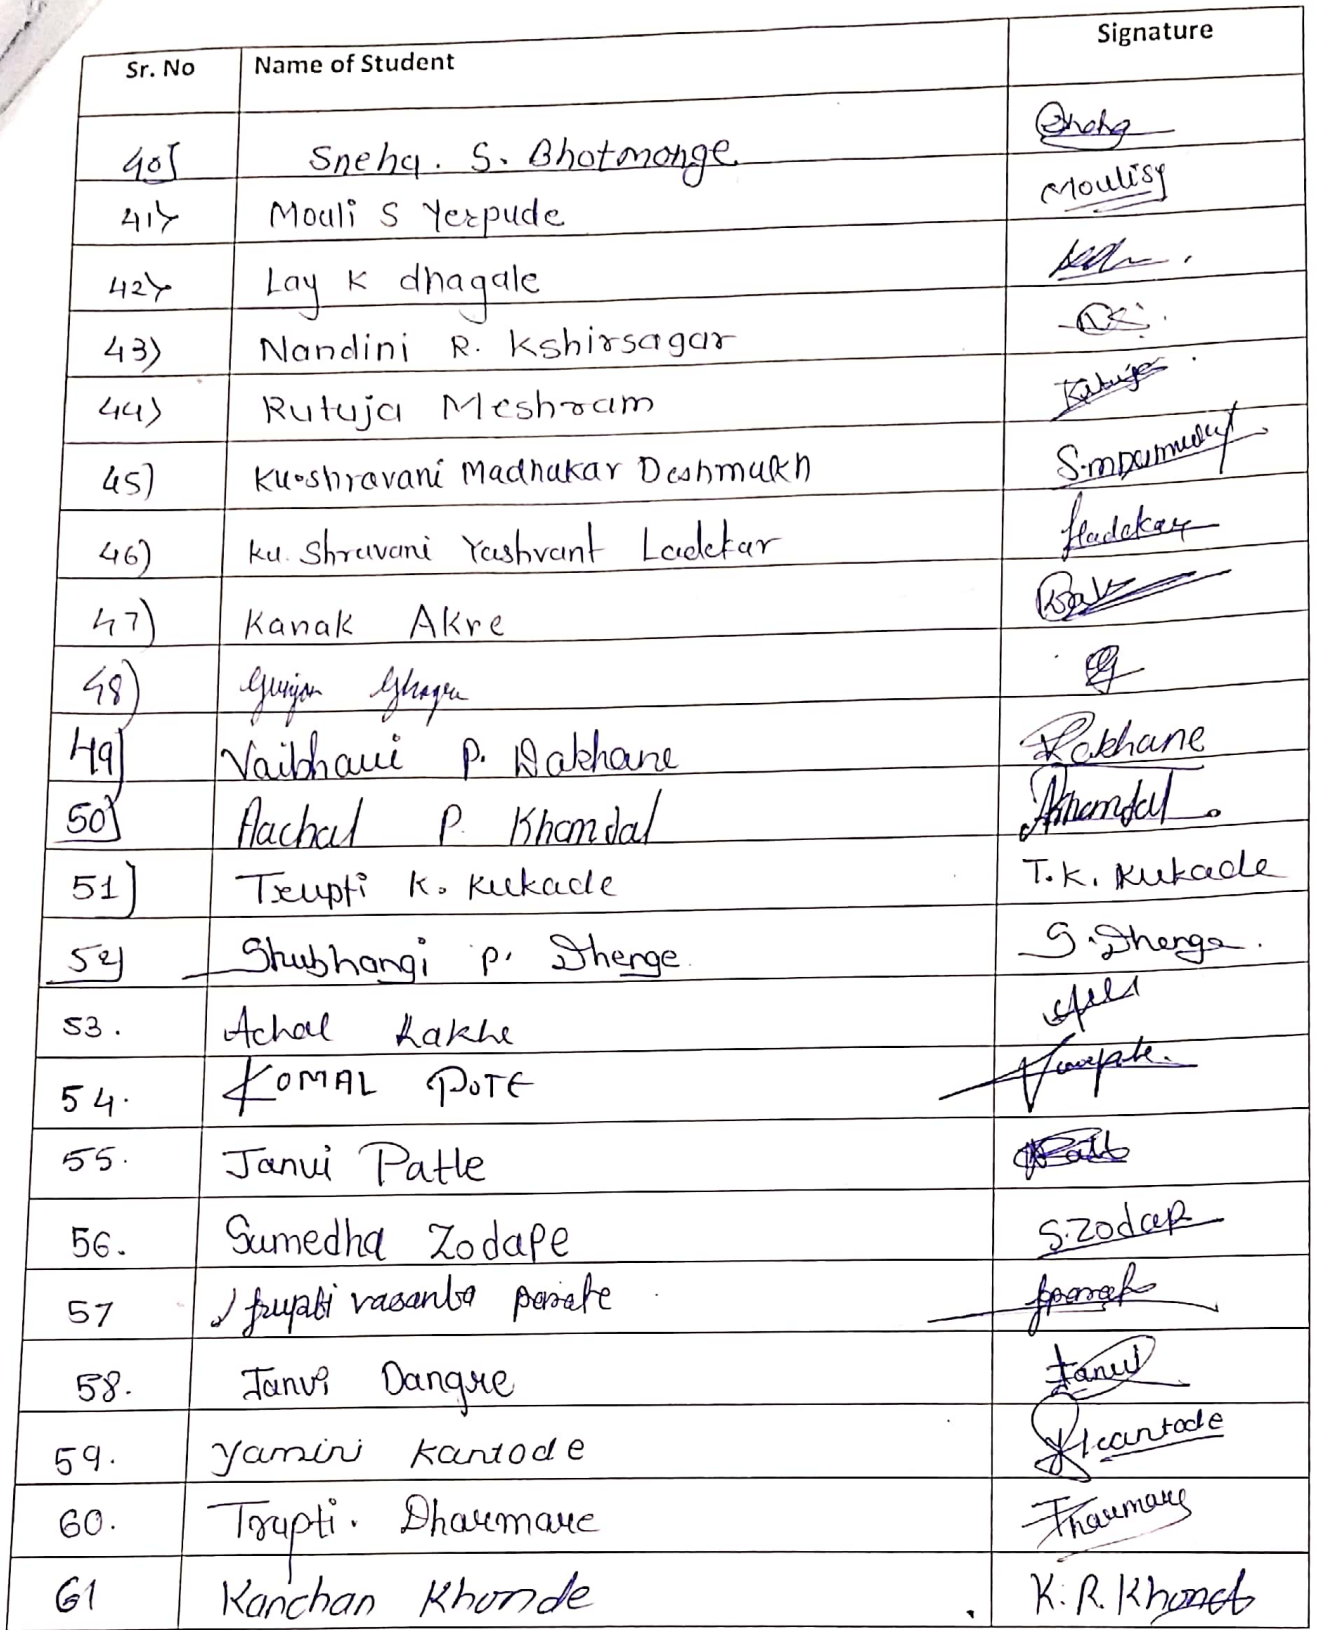 Sr. No Name of Student Signature
40] Sneha. S. Bhotmonge
41) Mouli S Yerpude Moulisy
42) Lay K dhagale
43) Nandini R. Kshirsagar
44) Rutuja Meshram
45) Ku. Shravani Madhukar Deshmukh
46) Ku. Shravani Yashvant Ladekar Sladekar
47) Kanak Akre
48) Gunjan
49] Vaibhavi P. Dakhane Dakhane
50] Aachal P. Khandal AKhandal
51) Trupti K. Kukade T. K. Kukade
52) Shubhangi P. Dhenge S. Dhenge.
53. Achal Kakhe
54. KOMAL POTE
55. Janvi Patle
56. Sumedha Zodape S. Zodap
57 Trupti vasanta parate
58. Janvi Dangre Janvi
59. Yamini Kantode YKantode
60. Trupti. Dharmare
61 Kanchan Khonde K. R. Khonde